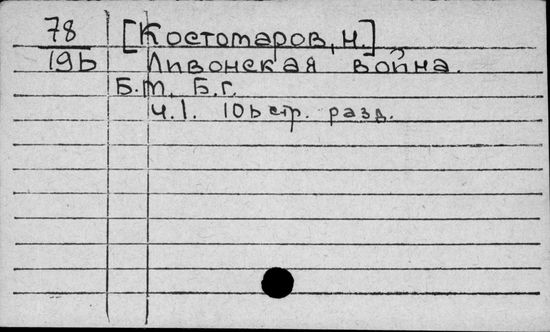 78 [Костомаров, Н.]
19b Ливонская война.
Б.м. Б.г.
Ч.1. 10b стр. разд.